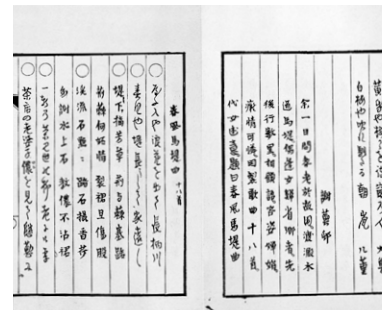 謝蕪邨
余一日問耆老於故園渡澱水
過馬堤偶逢女歸省郷者先
後行數里相顧語容姿嬋娟
癡情可憐因製歌曲十八首
代女述意題曰春風馬堤曲
春風馬堤曲 十八首
○やふ入や浪花を出て長柄川
○春風や堤長うして家遠し
○堤下摘芳草 荊与蕀塞路
荊蕀何妬情 裂裙且傷股
○渓流石點〻 踏石撮香芹
多謝水上石 教儂不沾裙
○一軒の茶見世の柳老にけり
○茶店の老婆子儂を見て慇懃に